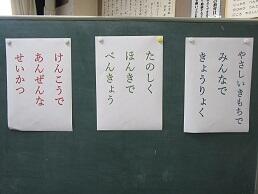 やさしいきもちで
みんなで
きょうりょく
たのしく
ほんきで
べんきょう
けんこうで
あんぜんな
せいかつ